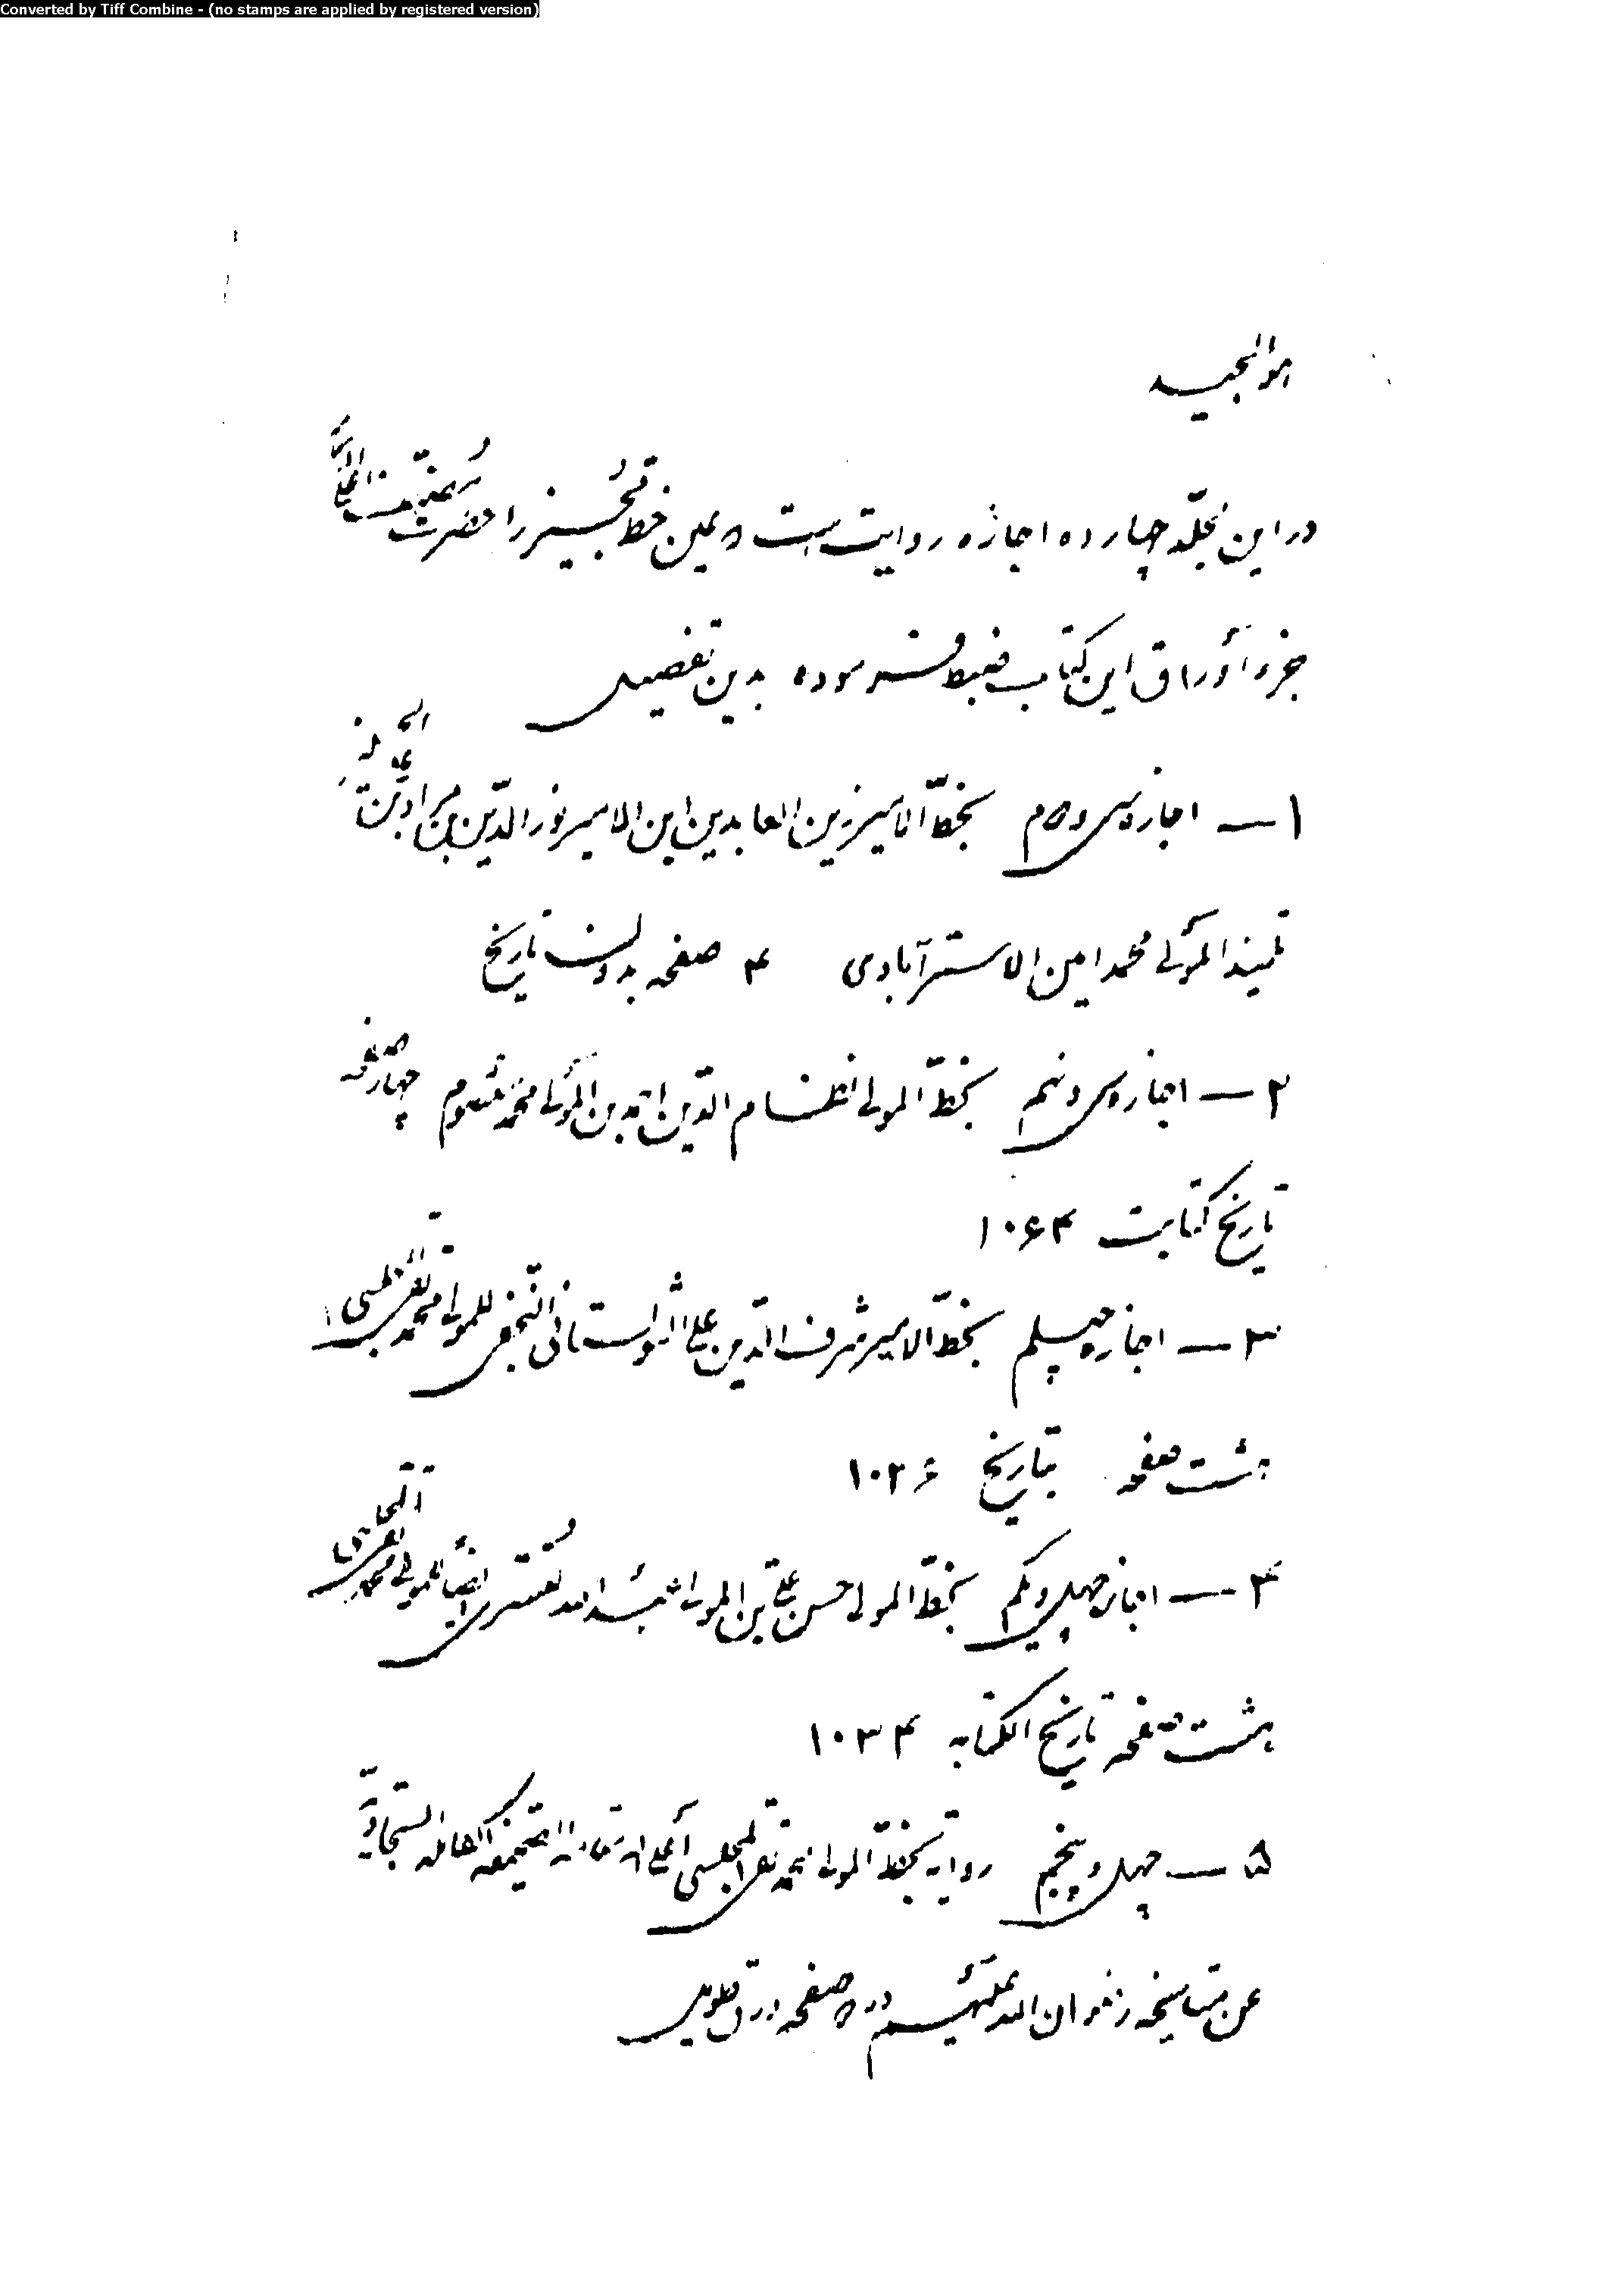 Converted by Tiff Combine - (no stamps are applied by registered version)
هوالمجید
در این مجلّد چهارده اجازه روایت است که عین خط مُجیز را حضرت مصنّف
جزء اوراق این کتاب ضبط فرموده بدین تفصیل
۱ — اجازه سی و بخطّ الامیر زین العابدین ابن الامیر نورالدین بن مراد بن
تلمیذ المولی محمد امین الاسترآبادی ۴ صفحه بدون تاریخ
۲ — اجازه سی و نهم بخطّ المولی نظام الدین احمد بن المولی معصوم چهار صفحه
تاریخ کتابت ۱۰۶۴
۳ — اجازه چهلم بخطّ الامیر شرف الدین علی الشولستانی النجفی للمولی محمد تقی المجلسی
هشت صفحه بتاریخ ۱۰۳۶
۴ — اجازه چهل و یکم بخطّ المولی حسن علی بن المولی عبدالله تستری ایضاً للمولی محمد تقی
هشت صفحه تاریخ الکتابه ۱۰۳۴
۵ — چهل و پنجم روایه بخطّ المولی محمد تقی المجلسی الصحیفه الکامله السجادیّه
عن مشایخه رضوان الله علیهم در ۵ صفحه ورق طویل